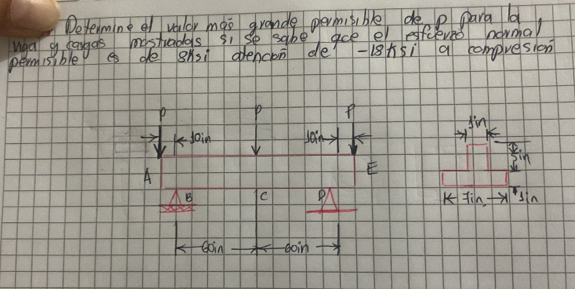 Determine el valor más grande permisible de P para la
viga y cargas mostradas, si se sabe que el esfuerzo normal
permisible es de 8ksi atencón de -18ksi a compresión
P P P
10in 10in
A E
B C D
60in 60in
1in
3in
7in 1in